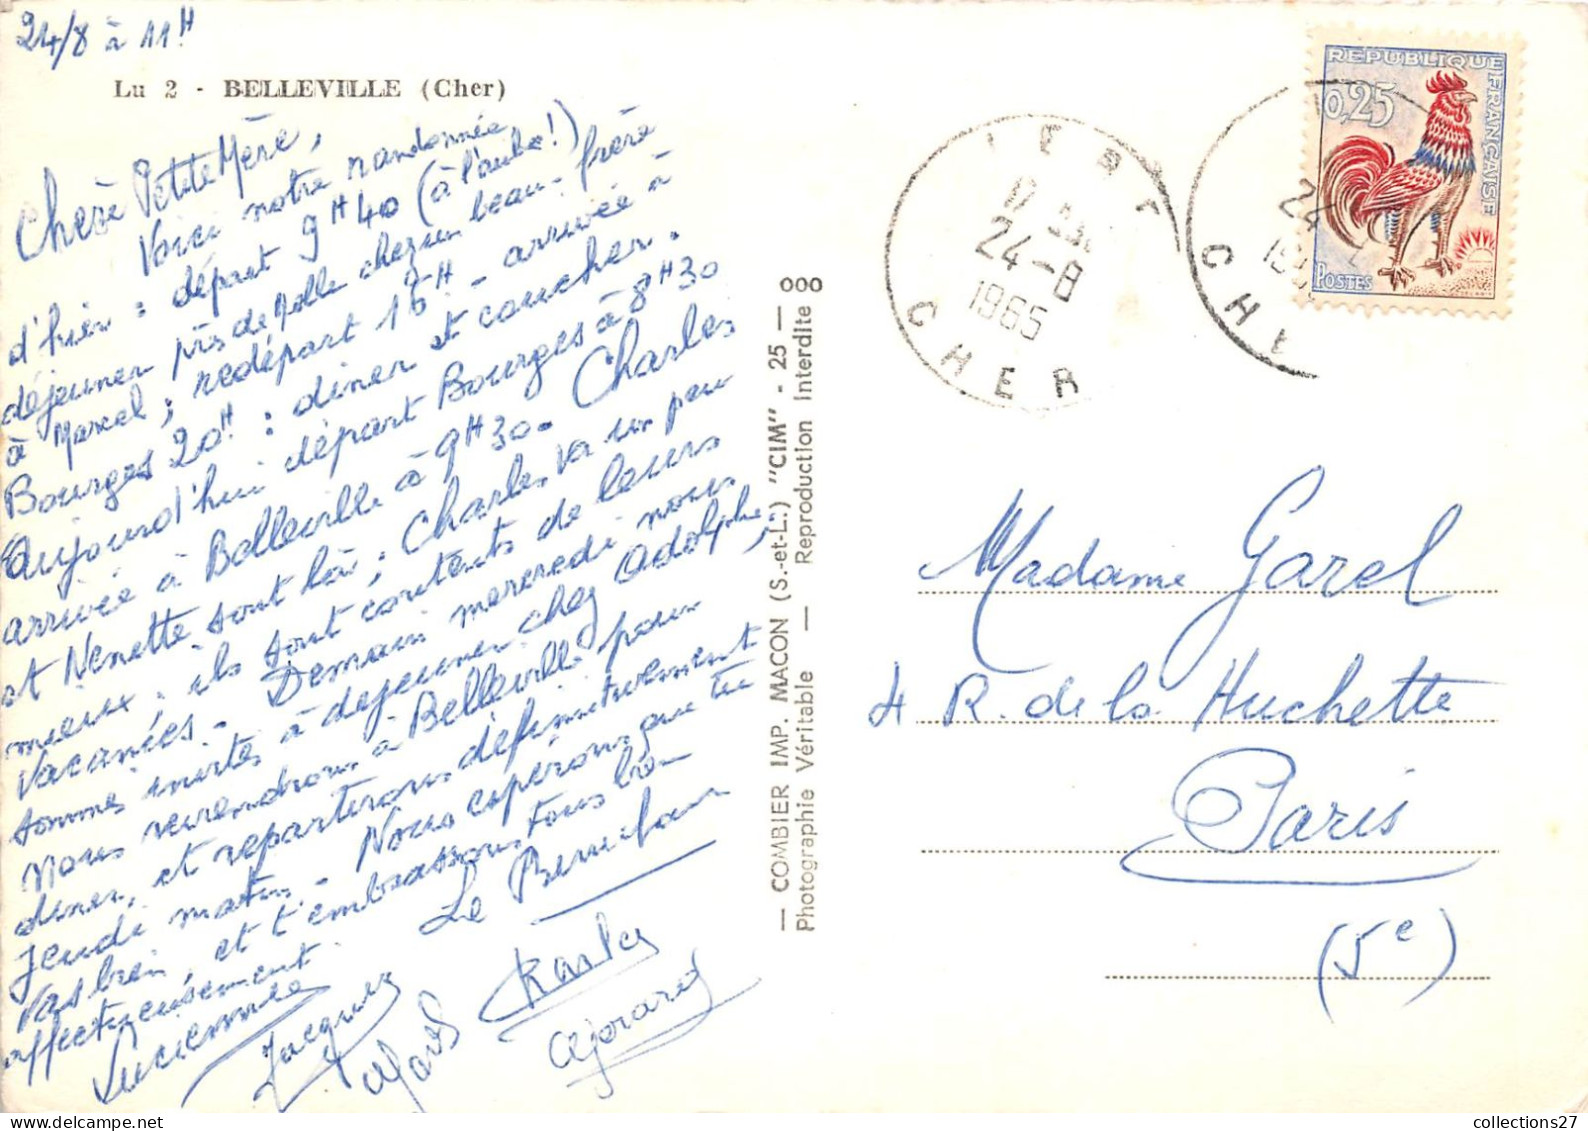 24/8 à 11H
Lu 2 - BELLEVILLE (Cher)
Chère Petite Mère,
Voici notre randonnée
d'hier : départ 9H40 (à l'aube !)
déjeuner près de Melle chez un beau-frère
à Marcel ; redépart 16H - arrivée à
Bourges 20H : diner et coucher.
Aujourd'hui départ Bourges à 8H30
arrivée à Belleville à 9H30 - Charles
et Nénette sont là ; Charles va un peu
mieux : ils sont contents de leurs
vacances - Demain mercredi nous
sommes invités à déjeuner chez Adolphe,
nous reviendrons à Belleville pour
diner, et repartirons définitivement
Jeudi matin - Nous espérons que tu
vas bien, et t'embrassons tous bien
affectueusement
Le Benubair
Lucienne Jacques
Charles
Gérard
— COMBIER IMP. MACON (S.-et-L.) "CIM" - 25 — 000
Photographie Véritable — Reproduction Interdite
CHER
24-8
1965
24
CHER
REPUBLIQUE FRANÇAISE
0,25
POSTES
Madame Garel
4 R. de la Huchette
Paris
(5e)
collections27